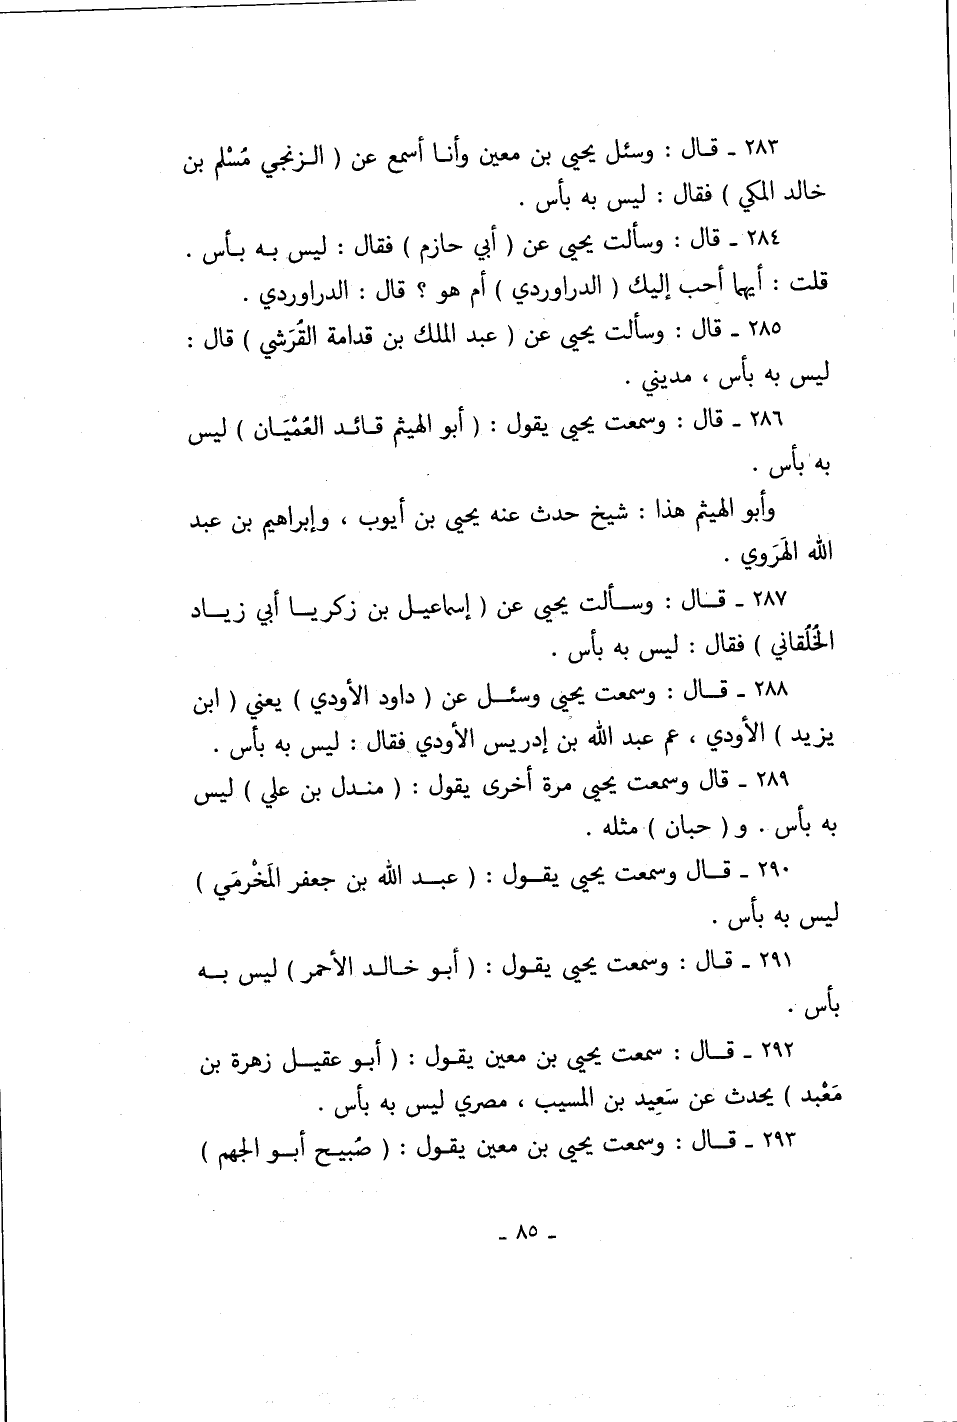 ٢٨٣ ـ قال : وسئل يحيى بن معين وأنا أسمع عن ( الزنجي مُسْلم بن
خالد المكي ) فقال : ليس به بأس .
٢٨٤ ـ قال : وسألت يحيى عن ( أبي حازم ) فقال : ليس به بأس .
قلت : أيهما أحب إليك ( الدراوردي ) أم هو ؟ قال : الدراوردي .
٢٨٥ ـ قال : وسألت يحيى عن ( عبد الملك بن قدامة القُرَشي ) قال :
ليس به بأس ، مديني .
٢٨٦ ـ قال : وسمعت يحيى يقول : ( أبو الهيثم قائد العُمْيَان ) ليس
به بأس .
وأبو الهيثم هذا : شيخ حدث عنه يحيى بن أيوب ، وإبراهيم بن عبد
الله الهَرَوي .
٢٨٧ ـ قال : وسألت يحيى عن ( إسماعيل بن زكريا أبي زياد
الخُلُقاني ) فقال : ليس به بأس .
٢٨٨ ـ قال : وسمعت يحيى وسئل عن ( داود الأودي ) يعني ( ابن
يزيد ) الأودي ، عم عبد الله بن إدريس الأودي فقال : ليس به بأس .
٢٨٩ ـ قال وسمعت يحيى مرة أخرى يقول : ( مندل بن علي ) ليس
به بأس . و ( حبان ) مثله .
٢٩٠ ـ قال وسمعت يحيى يقول : ( عبد الله بن جعفر المَخْرمَي )
ليس به بأس .
٢٩١ ـ قال : وسمعت يحيى يقول : ( أبو خالد الأحمر ) ليس به
بأس .
٢٩٢ ـ قال : سمعت يحيى بن معين يقول : ( أبو عقيل زهرة بن
مَعْبد ) يحدث عن سَعِيد بن المسيب ، مصري ليس به بأس .
٢٩٣ ـ قال : وسمعت يحيى بن معين يقول : ( صُبيح أبو الجهم )
ـ ٨٥ ـ